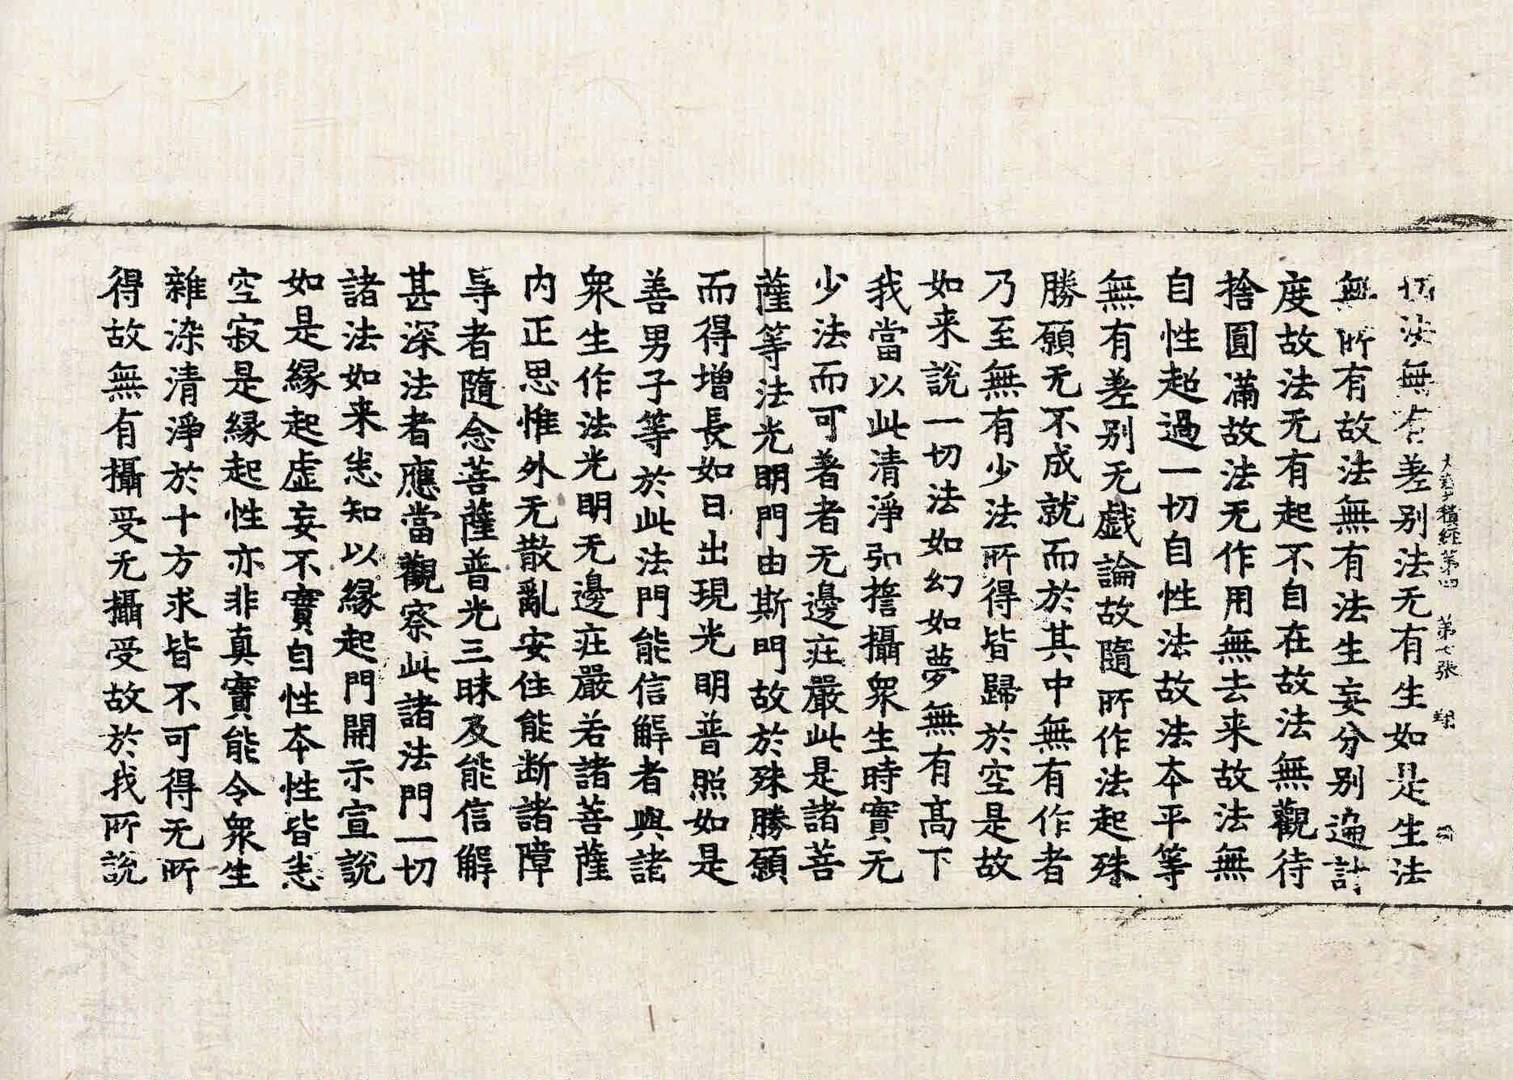 切法無有差别法无有生如是生法
無所有故法無有法生妄分别遍計
度故法无有起不自在故法無觀待
捨圓滿故法无作用無去来故法無
自性超過一切自性法故法本平等
無有差别无戲論故隨所作法起殊
勝願无不成就而於其中無有作者
乃至無有少法所得皆歸於空是故
如来說一切法如幻如夢無有高下
我當以此清淨弘誓攝衆生時實无
少法而可著者无邊莊嚴此是諸菩
薩等法光明門由斯門故於殊勝願
而得增長如日出現光明普照如是
善男子等於此法門能信解者與諸
衆生作法光明无邊莊嚴若諸菩薩
内正思惟外无散亂安住能断諸障
㝵者隨念菩薩普光三昧及能信解
甚深法者應當觀察此諸法門一切
諸法如来悉知以縁起門開示宣說
如是縁起虚妄不實自性本性皆悉
空寂是縁起性亦非真實能令衆生
雜染清淨於十方求皆不可得无所
得故無有攝受无攝受故於我所說
大寶積經第四 第七張 翔